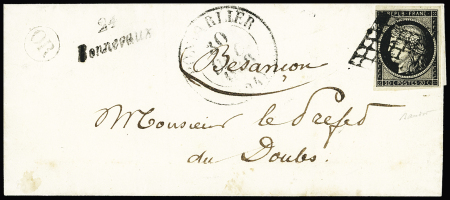 OR
24
Bonnevaux
PONTARLIER
10
REPUB. FRANC.
20 C. POSTES 20 C.
Besançon
Monsieur le Préfet
du Doubs